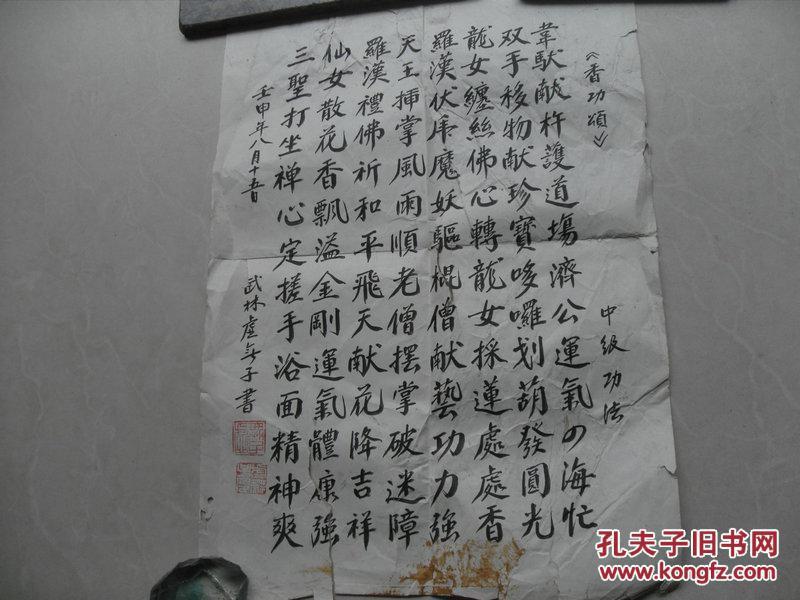 《香功頌》
中级功法
韋馱献杵護道場濟公運氣四海忙
双手移物献珍寶哆囉划葫發圓光
龍女纏絲佛心轉龍女採蓮處處香
羅漢伏虎魔妖驅棍僧献藝功力強
天王揷掌風雨順老僧摆掌破迷障
羅漢禮佛祈和平飛天献花降吉祥
仙女散花香飄溢金剛運氣體康強
三聖打坐禅心定搓手浴面精神爽
壬申年八月十五日
武林虛子書
孔夫子旧书网
www.kongfz.com